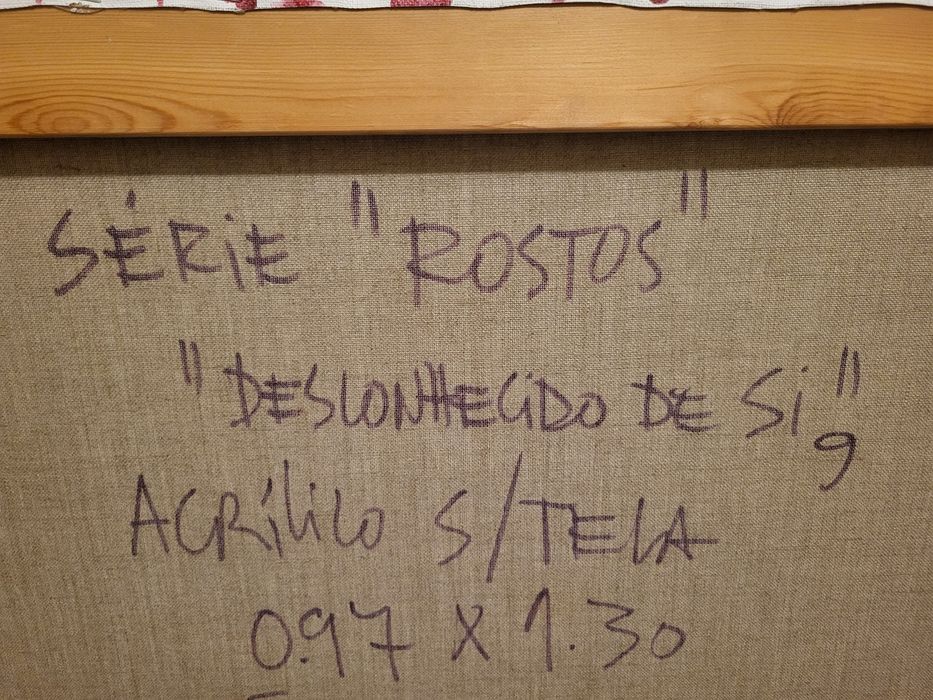 SÉRIE "ROSTOS"
"DESCONHECIDO DE SI",
ACRÍLICO S/TELA
0.97 X 1.30